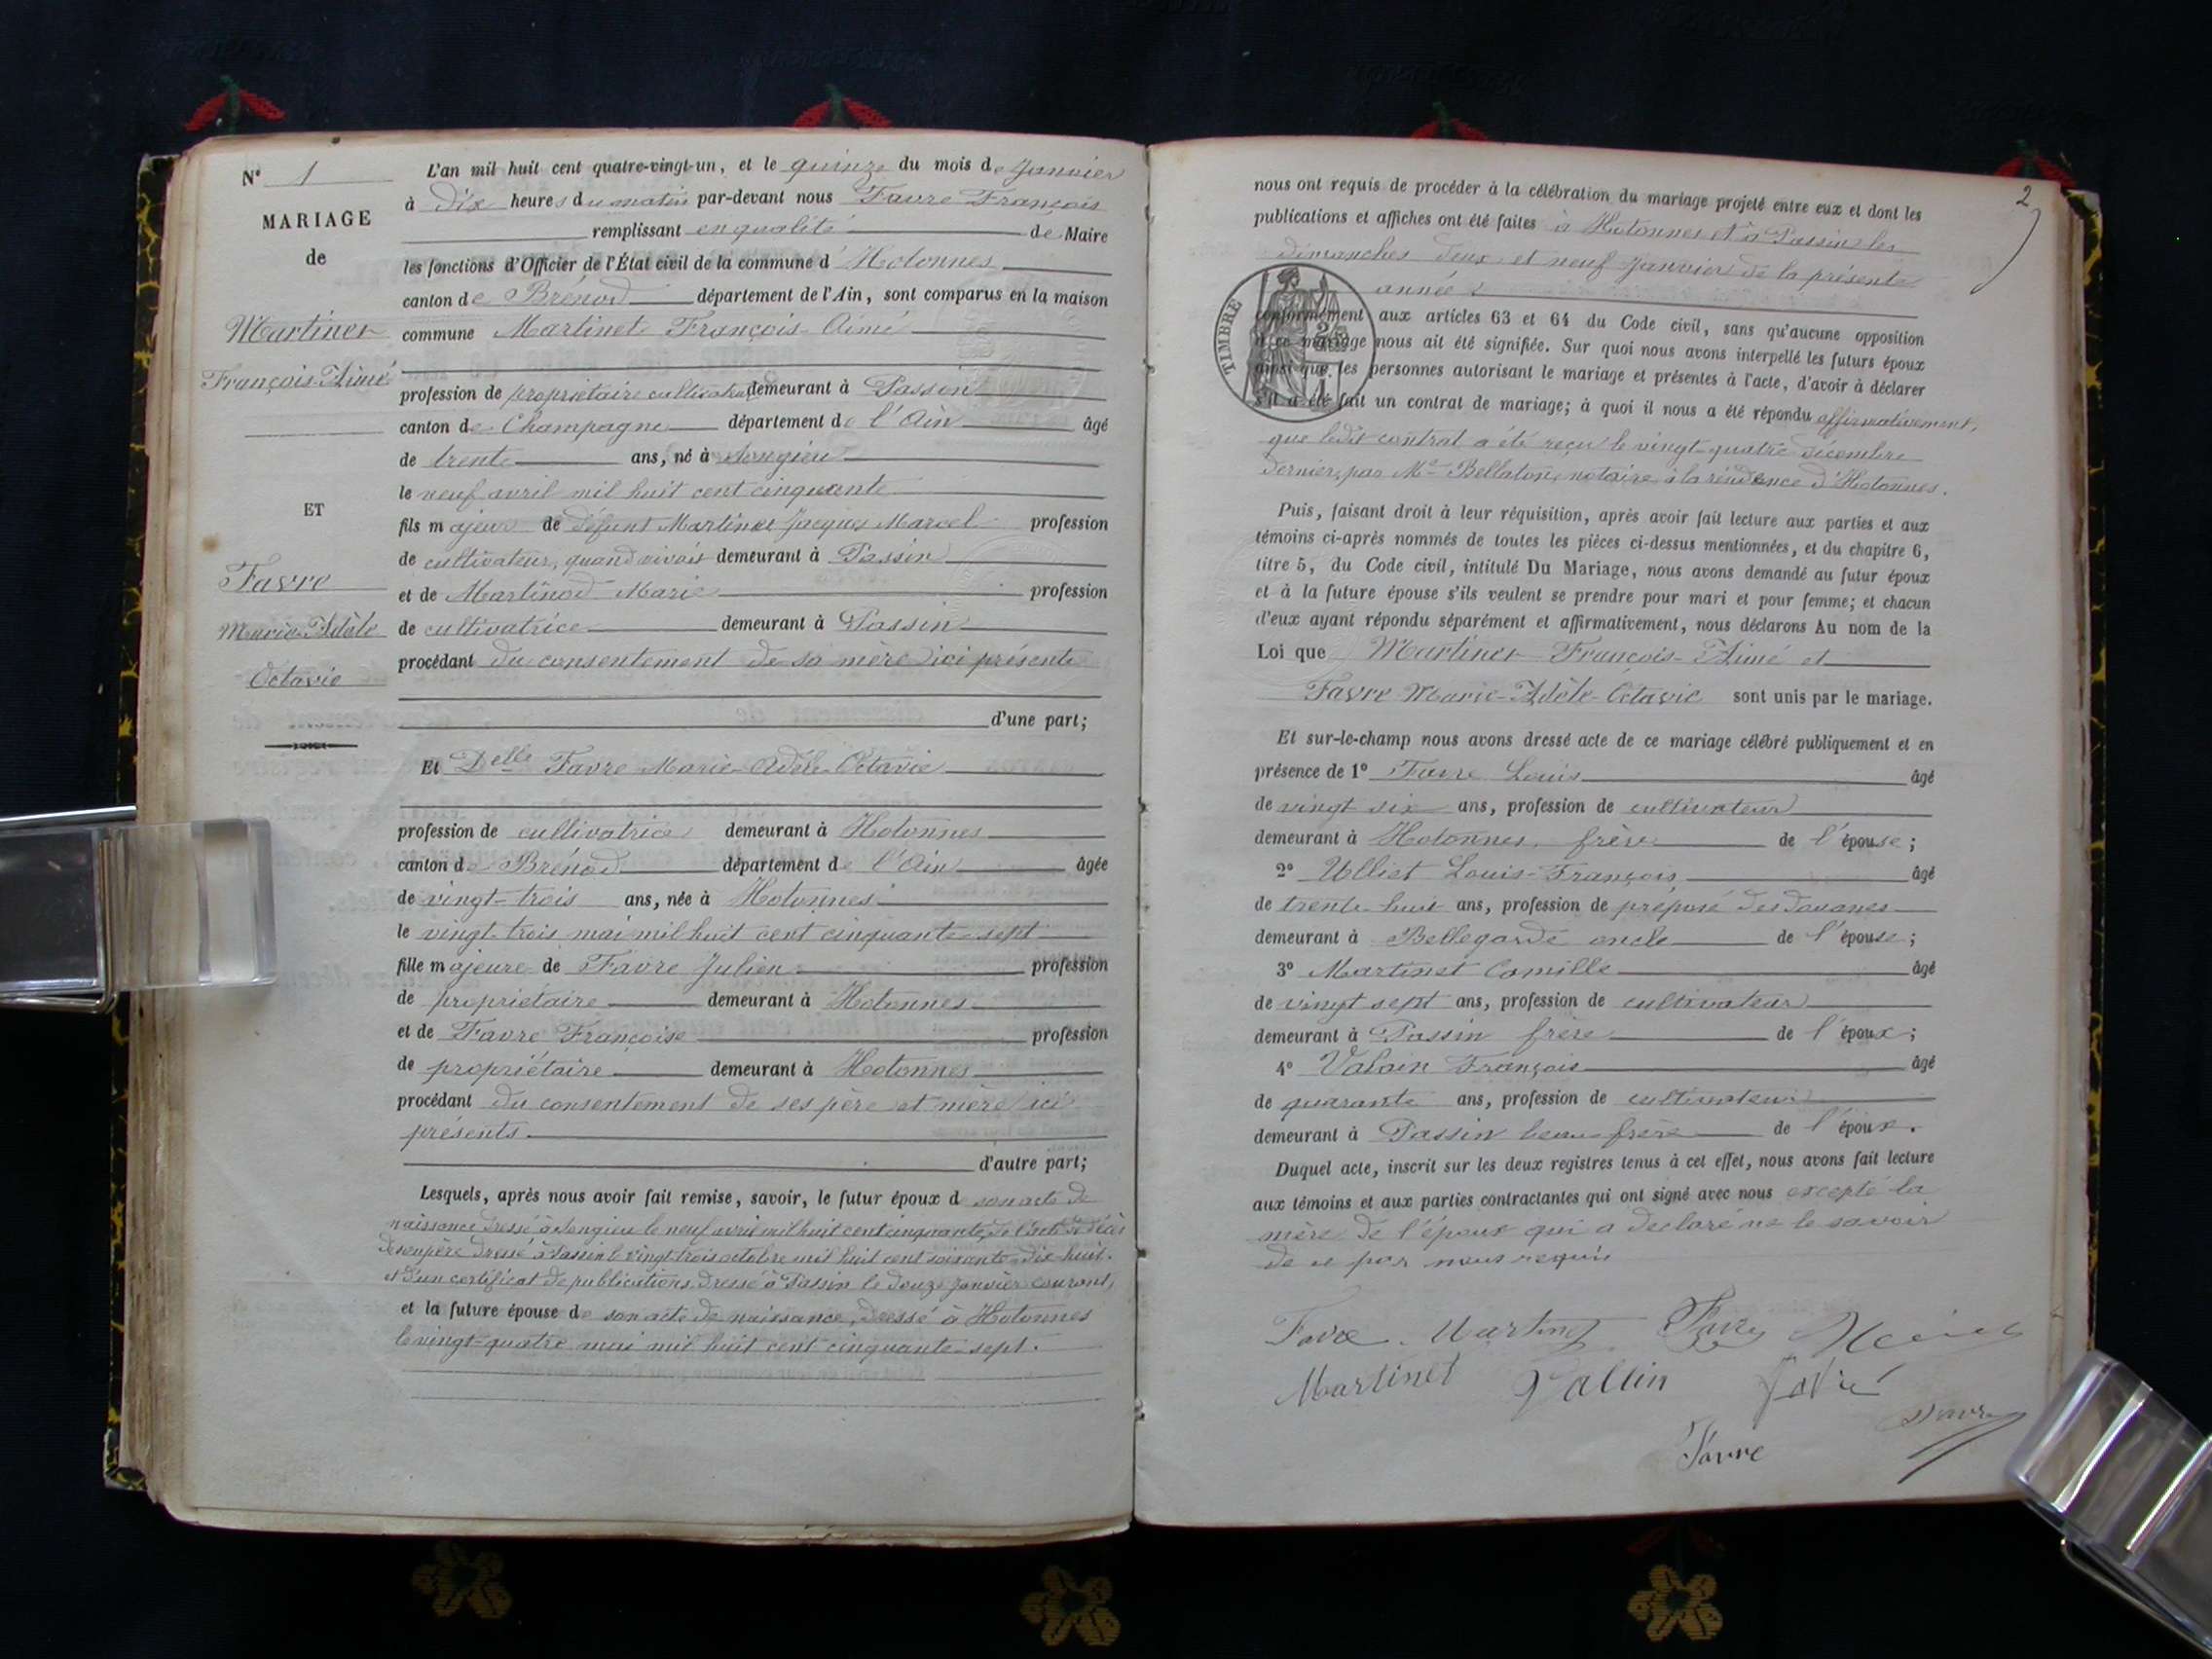 N° 1
MARIAGE
de
Martinet
François-Aimé
ET
Favre
Marie-Adèle
Octavie
L'an mil huit cent quatre-vingt-un, et le quinze du mois de Janvier
à dix heures du matin par-devant nous Favre François
remplissant en qualité de Maire
les fonctions d'Officier de l'État civil de la commune d'Hotonnes
canton de Brénod département de l'Ain, sont comparus en la maison
commune Martinet François-Aimé
profession de propriétaire cultivateur demeurant à Passin
canton de Champagne département de l'Ain âgé
de trente ans, né à Songieu
le neuf avril mil huit cent cinquante
fils majeur de défunt Martinet Jacques Marcel profession
de cultivateur, quand vivait demeurant à Passin
et de Martinod Marie profession
de cultivatrice demeurant à Passin
procédant du consentement de sa mère ici présente
d'une part;
Et Delle Favre Marie-Adèle-Octavie
profession de cultivatrice demeurant à Hotonnes
canton de Brénod département de l'Ain âgée
de vingt-trois ans, née à Hotonnes
le vingt-trois mai mil huit cent cinquante-sept
fille majeure de Favre Julien profession
de propriétaire demeurant à Hotonnes
et de Favre Françoise profession
de propriétaire demeurant à Hotonnes
procédant du consentement de ses père et mère ici
présents
d'autre part;
Lesquels, après nous avoir fait remise, savoir, le futur époux de son acte de
naissance dressé à Songieu le neuf avril mil huit cent cinquante, de l'acte de décès
de son père dressé à Passin le vingt trois octobre mil huit cent soixante-dix-huit.
et d'un certificat de publications dressé à Passin le douze Janvier courant,
et la future épouse de son acte de naissance, dressé à Hotonnes
le vingt-quatre mai mil huit cent cinquante-sept.
2
nous ont requis de procéder à la célébration du mariage projeté entre eux et dont les
publications et affiches ont été faites à Hotonnes et à Passin les
dimanches deux et neuf Janvier de la présente
année
TIMBRE
conformément aux articles 63 et 64 du Code civil, sans qu'aucune opposition
à ce mariage nous ait été signifiée. Sur quoi nous avons interpellé les futurs époux
ainsi que les personnes autorisant le mariage et présentes à l'acte, d'avoir à déclarer
s'il a été fait un contrat de mariage; à quoi il nous a été répondu affirmativement,
que ledit contrat a été reçu le vingt-quatre décembre
dernier, par Me Bellaton, notaire à la résidence d'Hotonnes.
Puis, faisant droit à leur réquisition, après avoir fait lecture aux parties et aux
témoins ci-après nommés de toutes les pièces ci-dessus mentionnées, et du chapitre 6,
titre 5, du Code civil, intitulé Du Mariage, nous avons demandé au futur époux
et à la future épouse s'ils veulent se prendre pour mari et pour femme; et chacun
d'eux ayant répondu séparément et affirmativement, nous déclarons Au nom de la
Loi que Martinet François-Aimé et
Favre Marie-Adèle-Octavie sont unis par le mariage.
Et sur-le-champ nous avons dressé acte de ce mariage célébré publiquement et en
présence de 1° Favre Louis âgé
de vingt six ans, profession de cultivateur
demeurant à Hotonnes, frère de l'épouse;
2° Ulliet Louis-François âgé
de trente-huit ans, profession de préposé des douanes
demeurant à Bellegarde oncle de l'épouse;
3° Martinet Camille âgé
de vingt sept ans, profession de cultivateur
demeurant à Passin frère de l'époux;
4° François âgé
de quarante ans, profession de cultivateur
demeurant à Passin beau-frère de l'époux.
Duquel acte, inscrit sur les deux registres tenus à cet effet, nous avons fait lecture
aux témoins et aux parties contractantes qui ont signé avec nous excepté la
mère de l'époux qui a déclaré ne le savoir
de ce par nous requis
Favre Martinet Favre
Martinet Vallin Favre
Favre
Favre